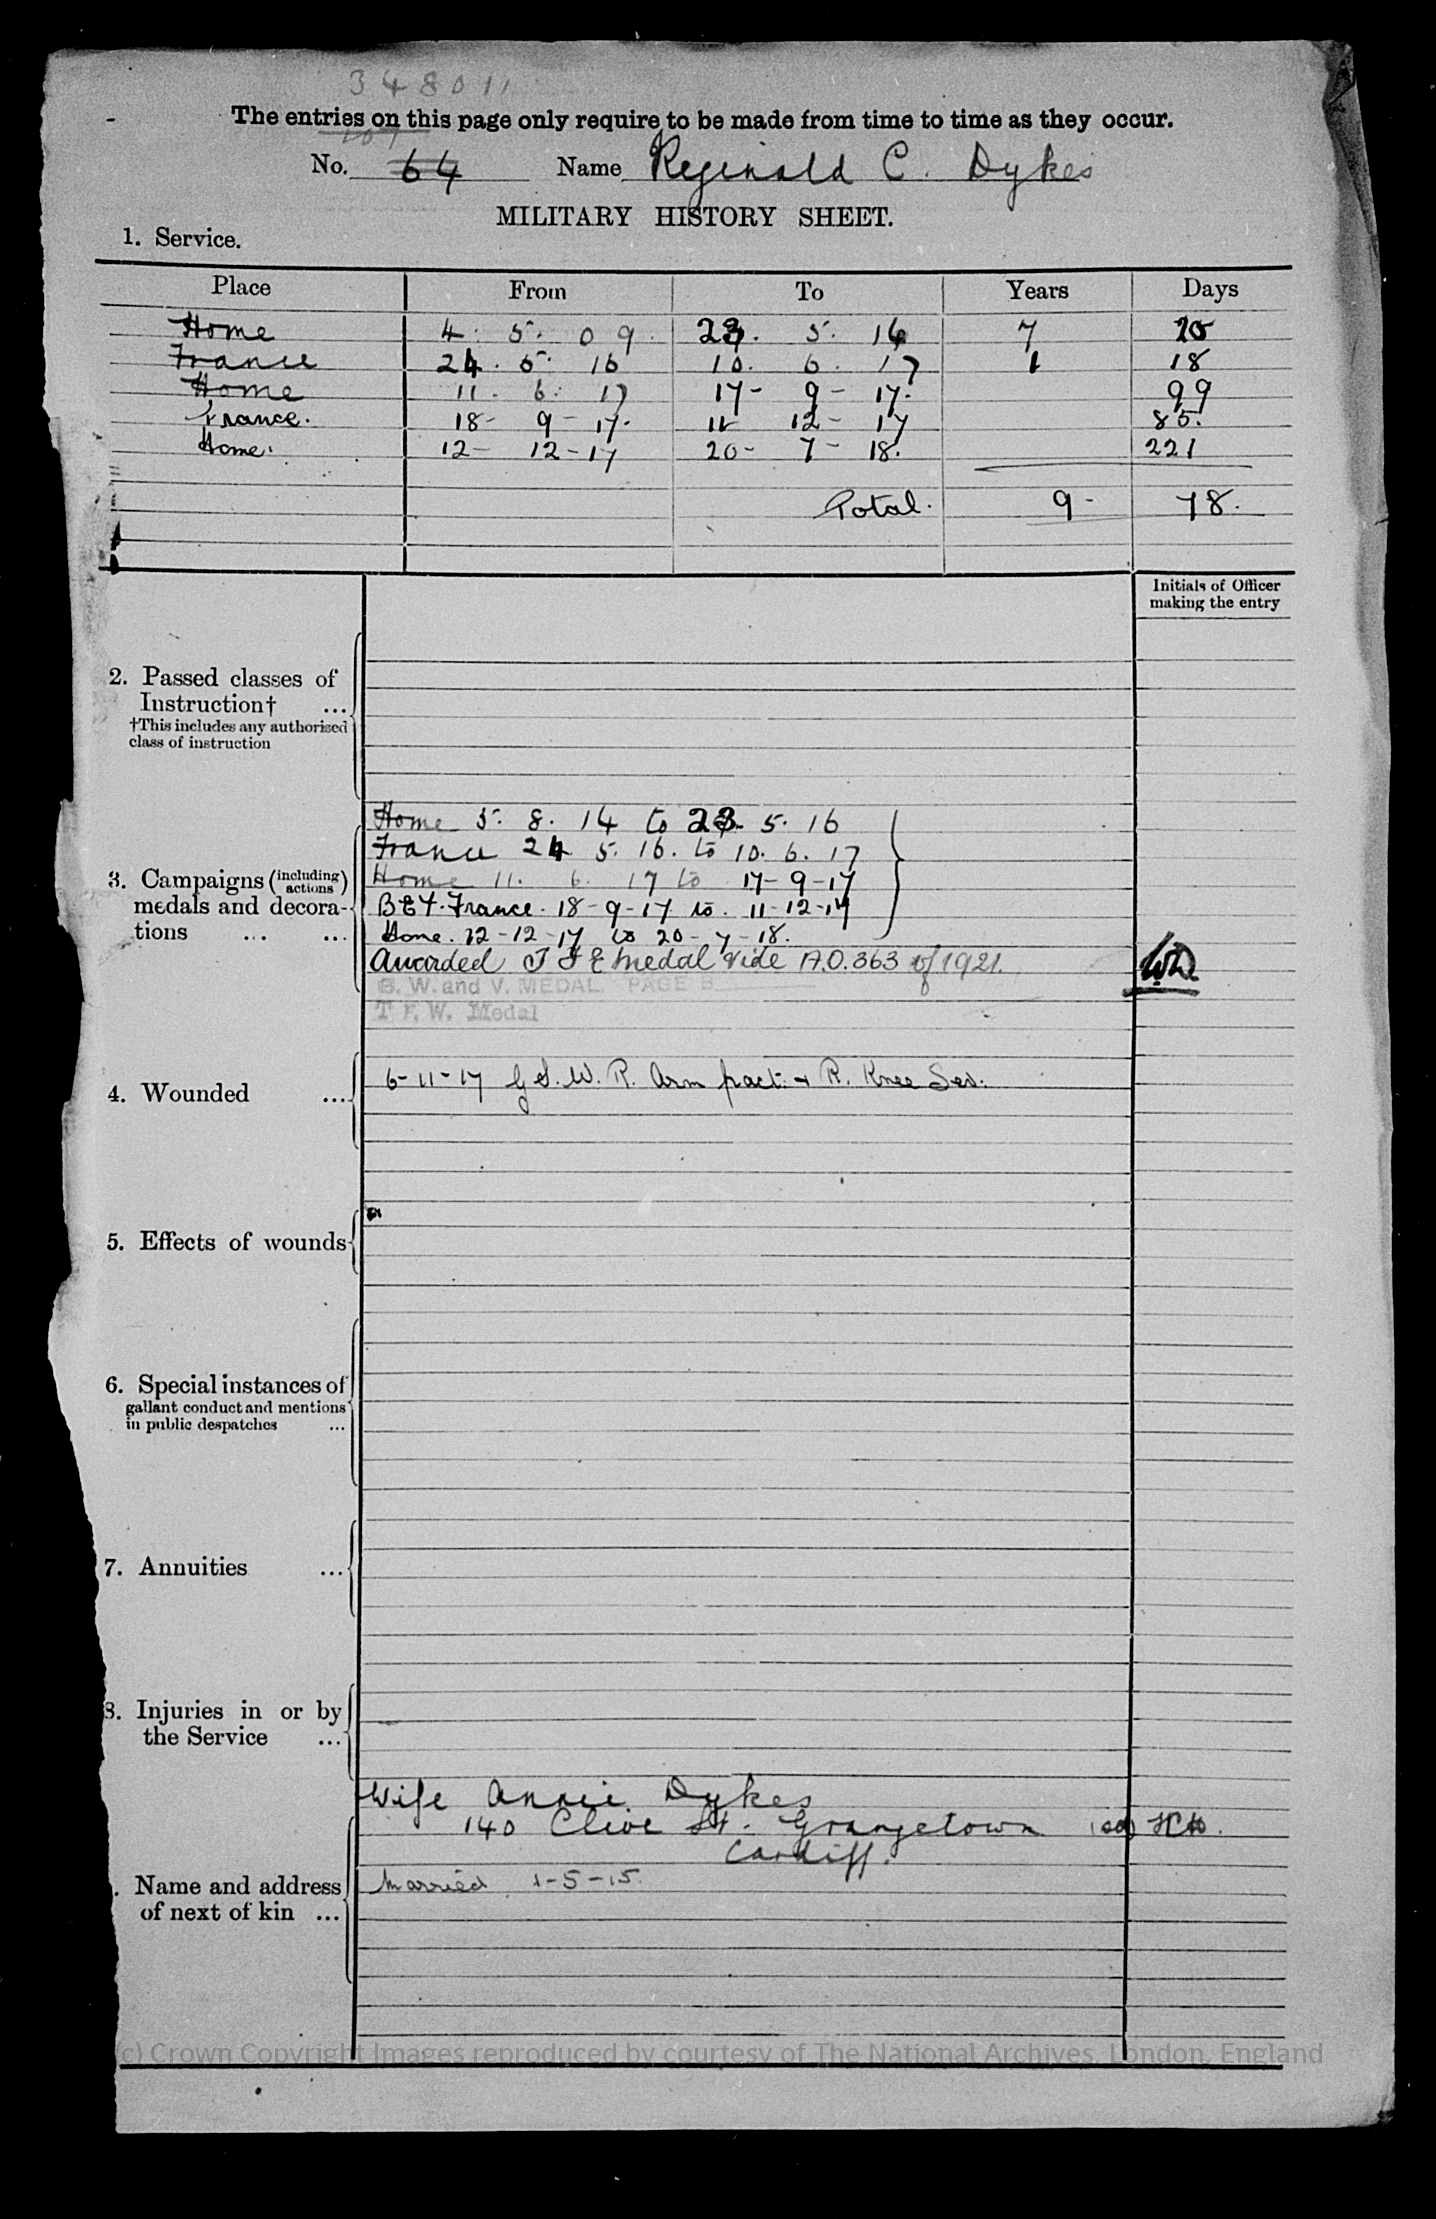 348011
The entries on this page only require to be made from time to time as they occur.
107
No. 64 Name Reginald C. Dykes
MILITARY HISTORY SHEET.
1. Service.
Place From To Years Days
Home 4. 5. 09. 23. 5. 16 7 20
France 24. 5. 16 10. 6. 17 1 18
Home 11. 6. 17 17- 9- 17. 99
France. 18- 9- 17. 11- 12- 17 85.
Home. 12- 12-17 20- 7- 18. 221
Total. 9- 78.
Initials of Officer
making the entry
2. Passed classes of
Instruction† ...
†This includes any authorised
class of instruction
Home 5. 8. 14 to 23. 5. 16
France 24 5. 16. to 10. 6. 17
3. Campaigns (including actions)
medals and decora-
tions ... ...
Home 11. 6. 17 to 17-9-17
B.E.F. France. 18-9-17 to. 11-12-17
Home. 12-12-17 to 20-7-18.
Awarded T F E medal vide A.O. 363 of 1921.
B. W. and V. MEDAL. PAGE B
T F. W. Medal
4. Wounded ...
6-11-17 G.S.W. R. Arm fract. + R. Knee Sev.
5. Effects of wounds
6. Special instances of
gallant conduct and mentions
in public despatches ...
7. Annuities ...
8. Injuries in or by
the Service ...
Wife Annie Dykes
140 Clive St. Grangetown
Cardiff.
Married 1-5-15.
. Name and address
of next of kin ...
(c) Crown Copyright Images reproduced by courtesy of The National Archives, London, England